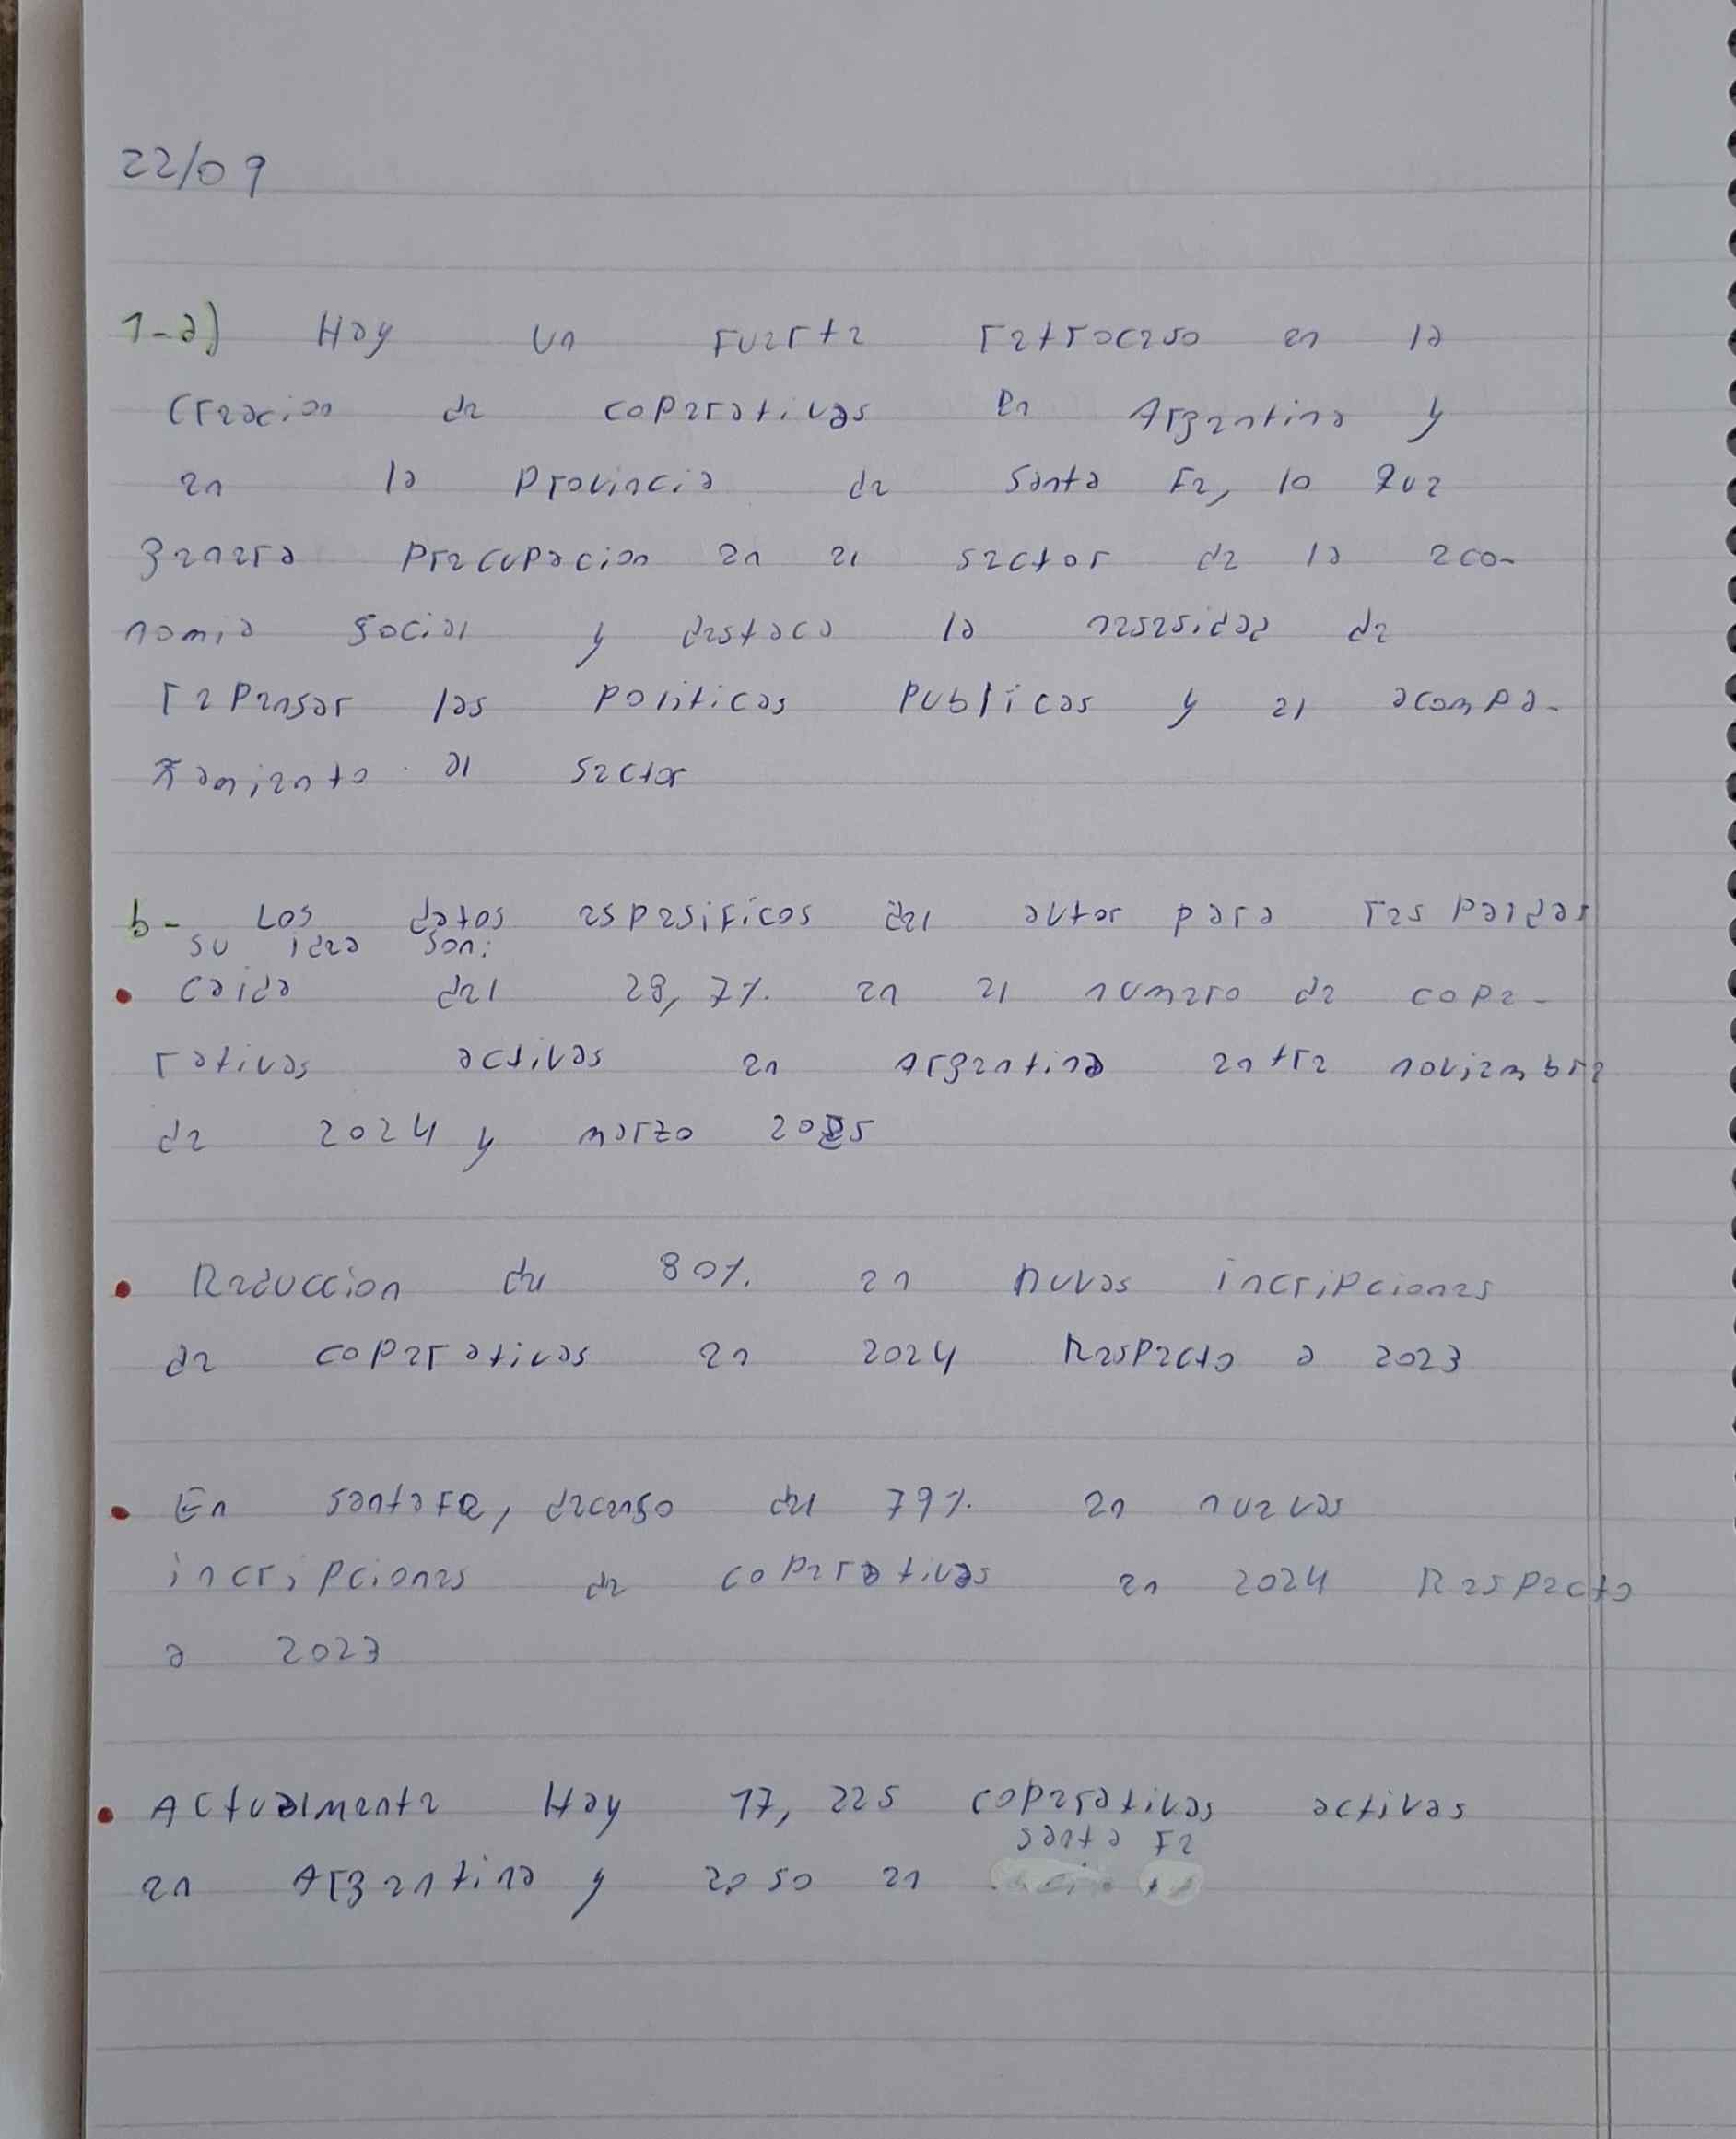 22/09
1-a) Hay un fuerte retroceso en la
Creacion de coperativas en Argentina y
en la provincia de Santa Fe, lo que
genera precupacion en el sector de la eco-
nomia social y destaca la nesesidad de
repensar las politicas publicas y el acompa-
ñamiento al sector
b- Los datos espesificos del autor para respaldar
su idea son:
• Caida del 28,7% en el numero de cope-
rativas activas en Argentina entre noviembre
de 2024 y marzo 2025
• Reduccion del 80% en nuvas incripciones
de coperativas en 2024 Respecto a 2023
• En santa Fe, decenso del 79% en nuevas
incripciones de coperativas en 2024 Respecto
a 2023
• Actualmente Hay 17,225 coperativas activas
santa Fe
en Argentina y 2050 en